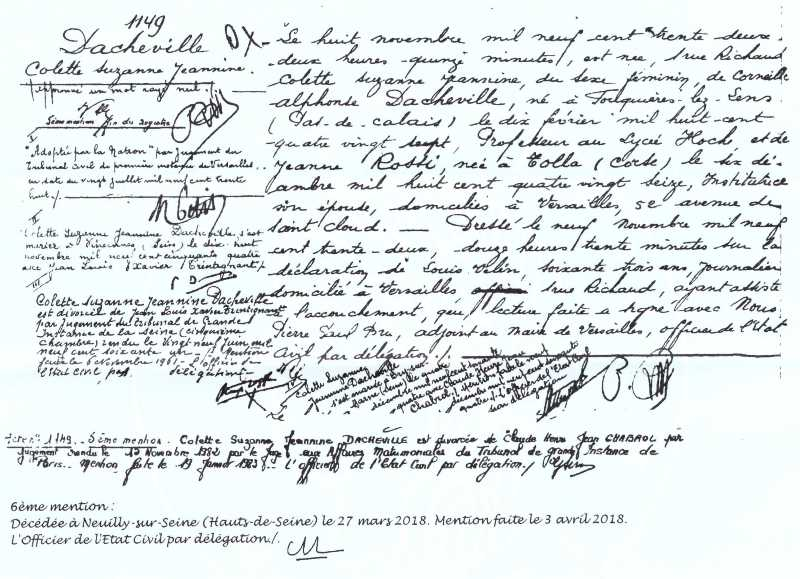 1149
Dacheville
Colette Suzanne Jeannine.
approuvé un mot rayé nul.
5ème mention fin du registre
I
"Adoptée par la Nation" par Jugement du
Tribunal civil de première instance de Versailles
en date du vingt juillet mil neuf cent trente
huit./.
II
Colette Suzanne Jeannine Dacheville s'est
mariée à Vincennes (Seine) le dix huit
novembre mil neuf cent cinquante quatre
avec Jean Louis Xavier Trintignant./.
III
Colette Suzanne Jeannine Dacheville
est divorcée de Jean Louis Xavier Trintignant
par Jugement du tribunal de Grande
Instance de la Seine
Chambre) rendu le vingt Juin mil
neuf cent soixante un ./. Mention
faite le 6 décembre 1961 - L'officier de
l'Etat Civil par délégation-
Le huit novembre mil neuf cent trente deux
deux heures quinze minutes, est née, 1 rue Richaud
Colette Suzanne Jeannine, du sexe féminin, de Corneille
Alphonse Dacheville, né à Fouquières-lez-Lens
(Pas-de-Calais) le dix février mil huit cent
quatre vingt sept, Professeur au Lycée Hoch, et de
Jeanne Rossi, née à Tolla (Corse) le six dé-
cembre mil huit cent quatre vingt seize, Institutrice
son épouse, domiciliés à Versailles, 52 avenue de
Saint Cloud. — Dressé le neuf novembre mil neuf
cent trente-deux, douze heures trente minutes sur la
déclaration de Louis Vilin, soixante trois ans, Journalier
domicilié à Versailles 1 rue Richaud, ayant assisté
à l'accouchement, qui lecture faite a signé avec Nous,
Pierre Paul Bru, adjoint au Maire de Versailles, officier de l'Etat
Civil par délégation./.
IV
Colette Suzanne
Jeannine Dacheville
s'est mariée à Bry-sur-
Marne (Seine) le quatre
décembre mil neuf cent soixante
quatre avec Claude Henri Jean
Chabrol ./. Mention faite le neuf
décembre mil neuf cent soixante
quatre ./. L'officier de l'Etat Civil
par délégation
Acte n° 1149. 5ème mention. Colette Suzanne Jeannine DACHEVILLE est divorcée de Claude Henri Jean CHABROL par
Jugement rendu le 12 Novembre 1982 par le Juge aux Affaires Matrimoniales du Tribunal de grande Instance de
Paris. Mention faite le 19 Janvier 1983. L'officier de l'Etat Civil par délégation./.
6ème mention :
Décédée à Neuilly-sur-Seine (Hauts-de-Seine) le 27 mars 2018. Mention faite le 3 avril 2018.
L'Officier de l'Etat Civil par délégation./.